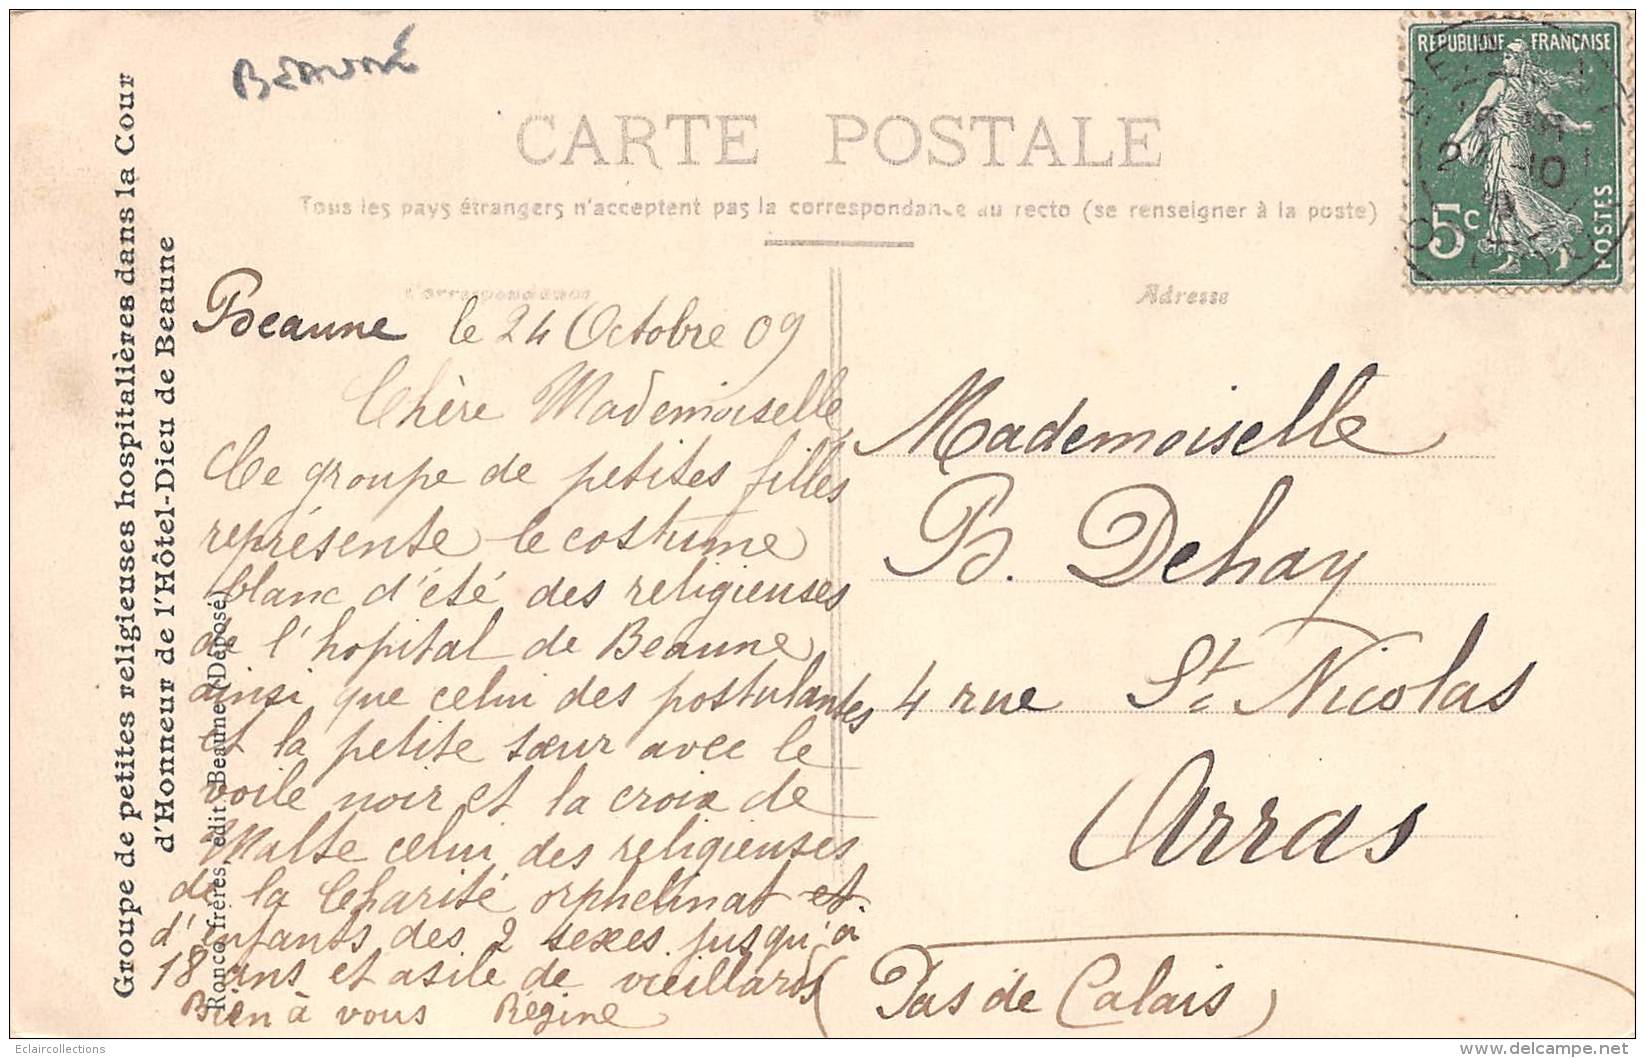 BEAUNE
CARTE POSTALE
Tous les pays étrangers n'acceptent pas la correspondance au recto (se renseigner à la poste)
REPUBLIQUE FRANÇAISE
5c
POSTES
Groupe de petites religieuses hospitalières dans la Cour
d'Honneur de l'Hôtel-Dieu de Beaune
Ronco frères, edit. Beaune (Déposé)
Correspondance
Beaune le 24 Octobre 09
Chère Mademoiselle,
Ce groupe de petites filles
représente le costume
blanc d'été des religieuses
de l'hopital de Beaune
ainsi que celui des postulantes
et la petite sœur avec le
voile noir et la croix de
Malte celui des religieuses
de la Charité orphelinat et
d'enfants des 2 sexes jusqu'à
18 ans et asile de vieillards
Bien à vous Régine
Adresse
Mademoiselle
B. Dehay
4 rue St Nicolas
Arras
(Pas de Calais)
Eclaircollections